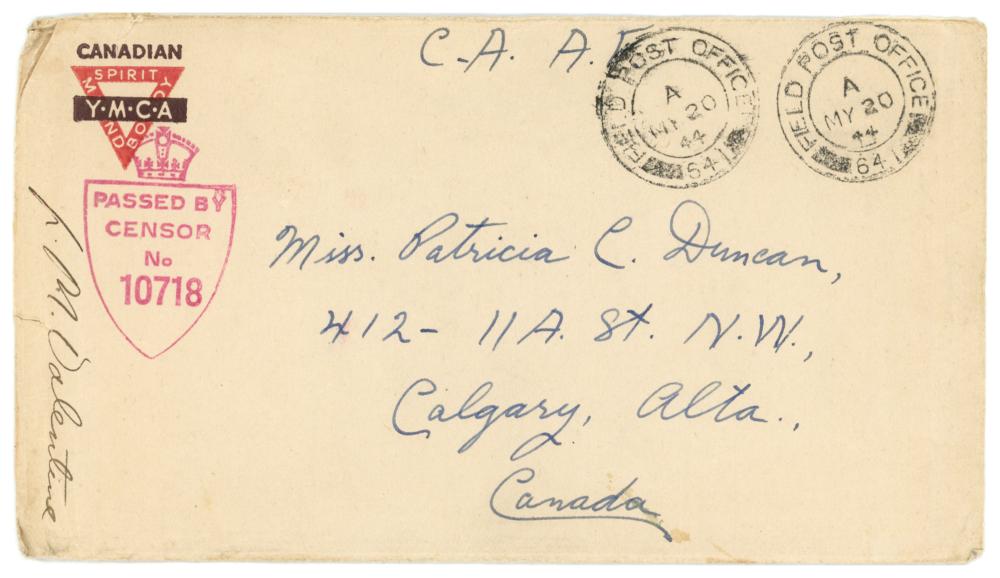 CANADIAN
SPIRIT
MIND
BODY
Y·M·C·A
C.A. A.F.
FIELD POST OFFICE
A
MY 20
44
641
FIELD POST OFFICE
A
MY 20
44
641
PASSED BY
CENSOR
No
10718
Miss. Patricia C. Duncan,
412- 11A. St. N.W.,
Calgary, Alta.,
Canada
K. M. Valentine